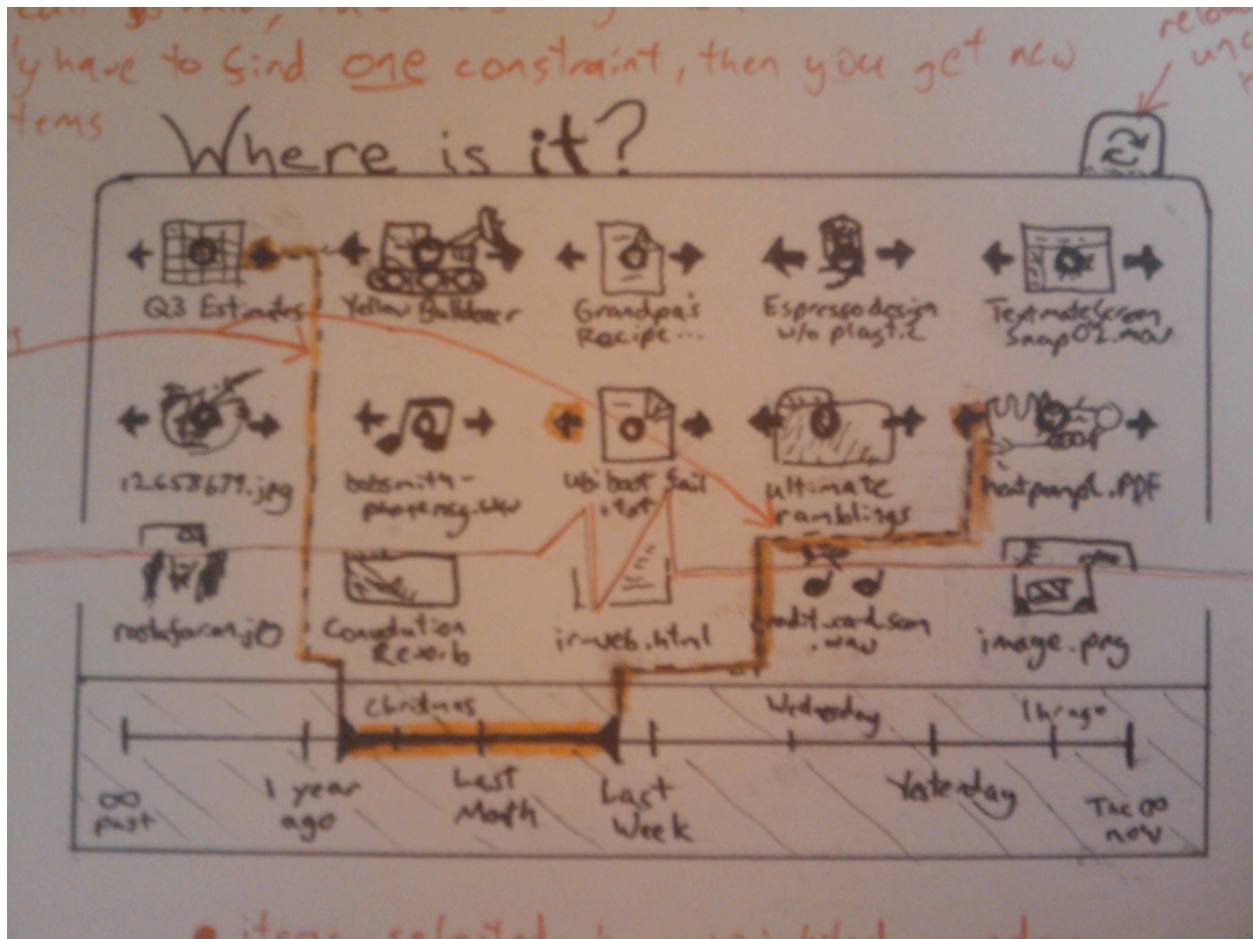 'y have to find one constraint, then you get new
tems
Where is it?
Q3 Estimates
Yellow Bulldozer
Grandpa's
Recipe...
Espresso design
w/o plastic
Textmate Screen
Snap02.mov
12658679.jpg
bobsmith-
phonemsg.wav
ubiboot fail
.txt
ultimate
ramblings
heatpump1.PDF
Convolution
Reverb
ir-web.html
credit_card_scan
.wav
image.png
Christmas
Wednesday
1 hr ago
∞
past
1 year
ago
Last
Month
Last
Week
Yesterday
The ∞
now
items selected by weighted